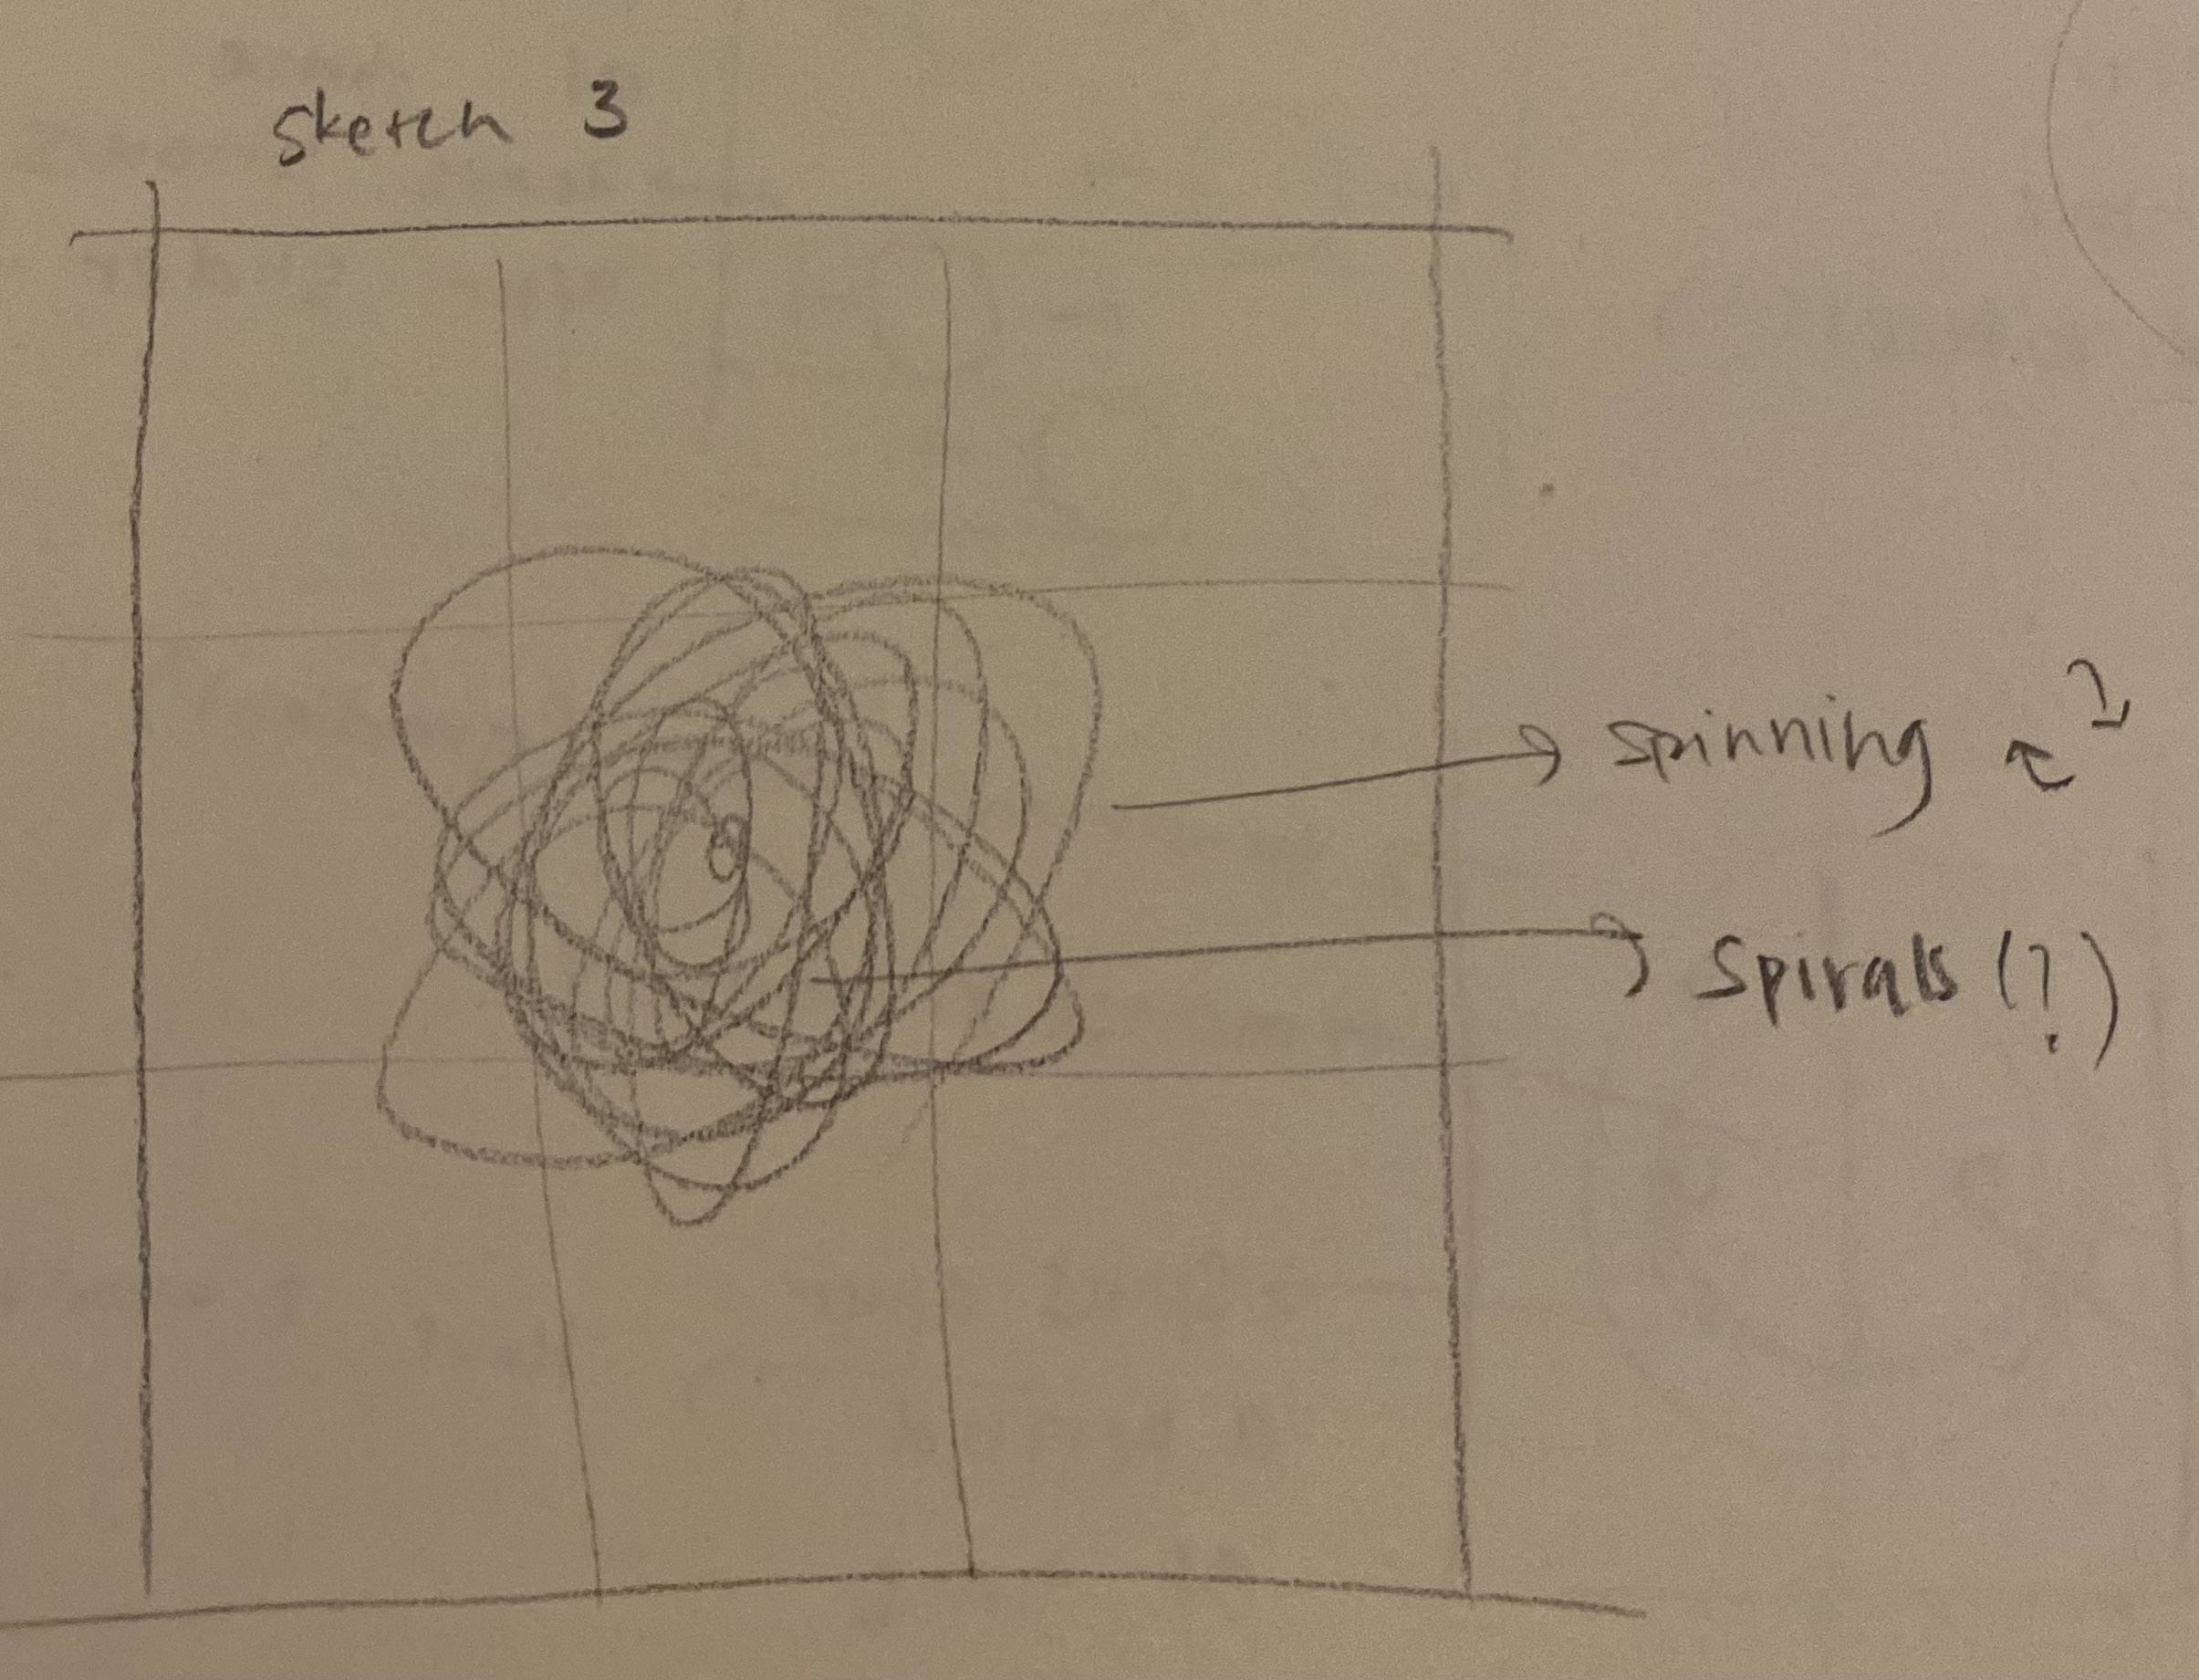 sketch 3
spinning
spirals (?)